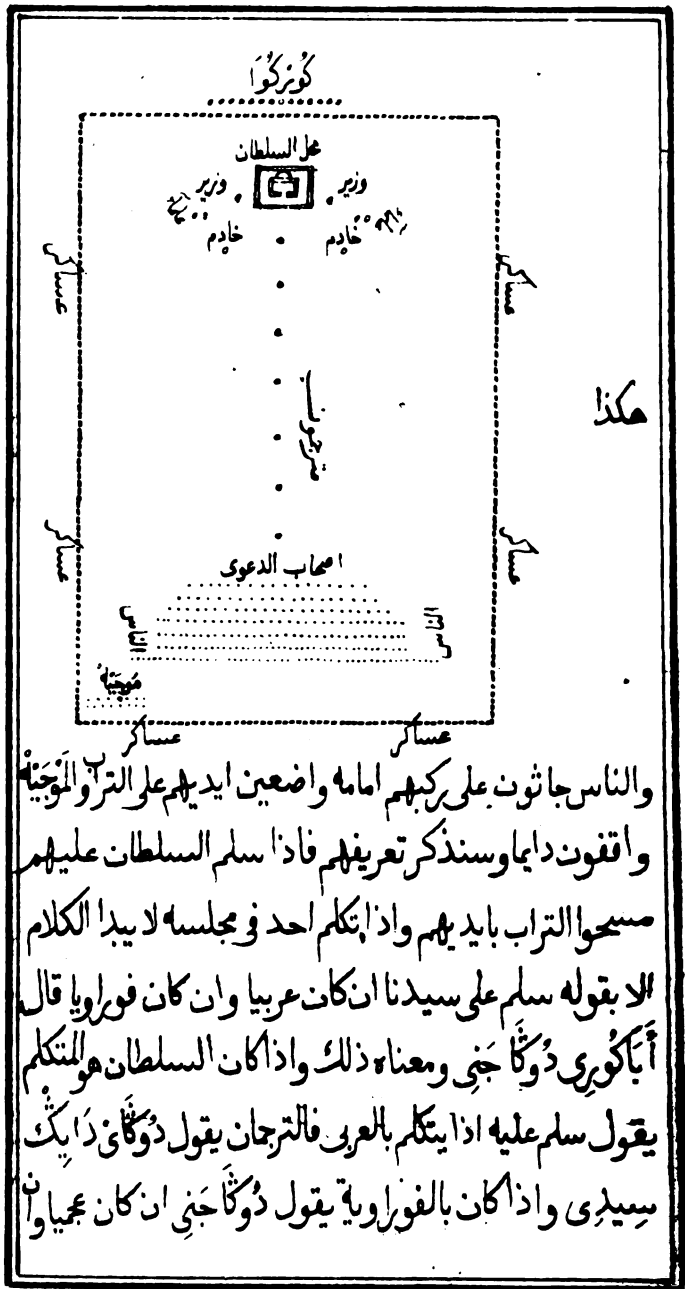 كُونركُوَا
محل السلطان
وزير
وزير
خادم
خادم
عساكر
عساكر
هكذا
مترجون
عساكر
عساكر
اصحاب الدعوى
الناس
الناس
مَوجَيْهْ
عساكر
عساكر
والناس جاثون على ركبهم امامه واضعين ايديهم على التراب والمَوْجَيْهْ
واقفون دايما وسنذكر تعريفهم فاذا سلم السلطان عليهم
مسحوا التراب بايديهم واذا تكلم احد فى مجلسه لا يبدا الكلام
الا بقوله سلم على سيدنا ان كان عربيا وان كان فوراويا قال
أَبَاكُورِى دُوكَا جَنِى ومعناه ذلك واذا كان السلطان هو المتكلم
يقول سلم عليه اذا يتكلم بالعربى فالترجمان يقول
سِيدِى واذا كان بالفوراوية يقول دُوكَا جَنِى ان كان عجميا وان